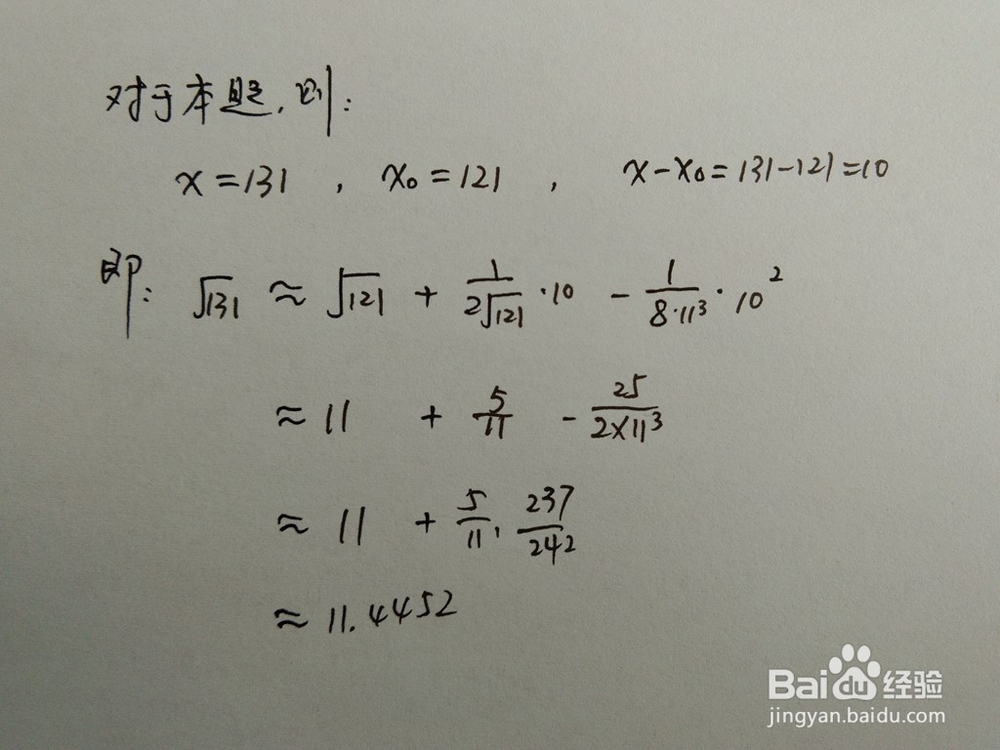 对于本题，则：
x=131 , x₀=121 , x-x₀=131-121=10
即： √131 ≈ √121 + 1/(2√121) ·10 - 1/(8·11³) ·10²
≈ 11 + 5/11 - 25/(2×11³)
≈ 11 + 5/11 · 237/242
≈ 11.4452
Baidu 经验
jingyan.baidu.com